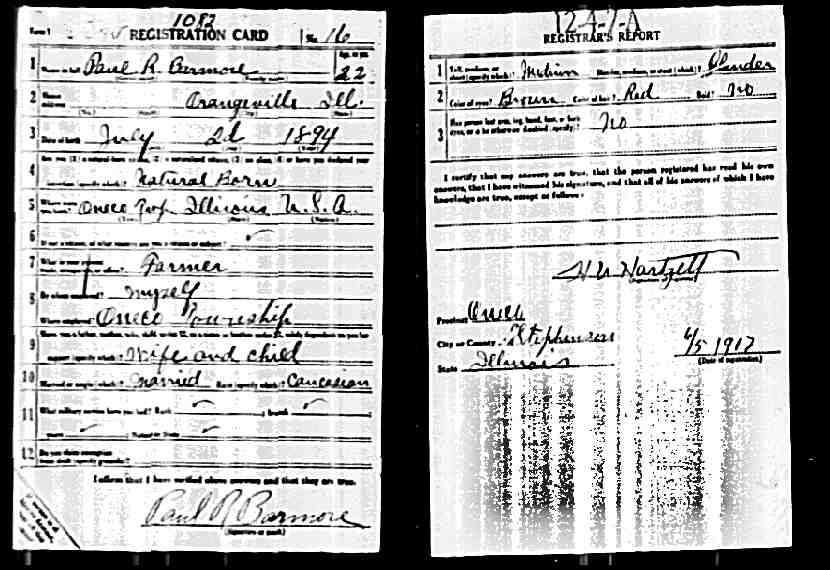 1082
Form 1 REGISTRATION CARD No. 16
1 Name in full Paul R. Barmore Age, in yrs. 22
2 Home address Orangeville Ill.
3 Date of birth July 2d 1894
4 Are you (1) a natural-born citizen, (2) a naturalized citizen, (3) an alien, (4) or have you declared your
intention (specify which)? Natural Born
5 Oneco Twp. Illinois U.S.A.
6 If not a citizen, of what country are you a citizen or subject? ✓
7 What is your present Farmer
8 By whom employed? myself
Where employed? Oneco Township
9 Have you a father, mother, wife, child under 12, or a sister or brother under 12, solely dependent on you for
support (specify which)? Wife and child
10 Married or single (which)? Married Race (specify which)? Caucasian
11 What military service have you had? Rank ✓ ; branch ✓
years ✓ ; Nation or State ✓
12 Do you claim exemption
from draft (specify grounds)?
I affirm that I have verified above answers and that they are true.
Paul R Barmore
(Signature or mark)
12-4-7-A
REGISTRAR'S REPORT
1 Tall, medium, or short (specify which)? Medium Slender, medium, or stout (which)? Slender
2 Color of eyes? Brown Color of hair? Red Bald? No
3 Has person lost arm, leg, hand, foot, or both
eyes, or is he otherwise disabled (specify)? No
I certify that my answers are true, that the person registered has read his own
answers, that I have witnessed his signature, and that all of his answers of which I have
knowledge are true, except as follows:
H W Hartzell
(Signature of registrar)
Precinct Oneco
City or County Stephenson
State Illinois
6/5 1917
(Date of registration)